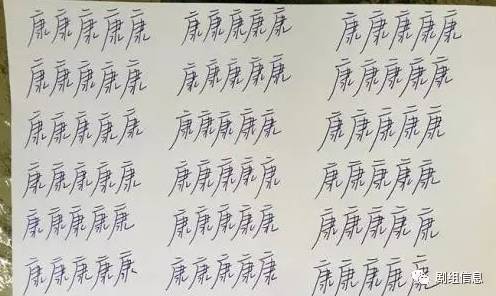 康康康康康 康康康康康 康康康康康
康康康康康 康康康康康 康康康康康
康康康康康 康康康康康 康康康康康
康康康康康 康康康康康 康康康康康
康康康康康 康康康康康 康康康康康
康康康康康 康康康康康 康康康康康
剧组信息